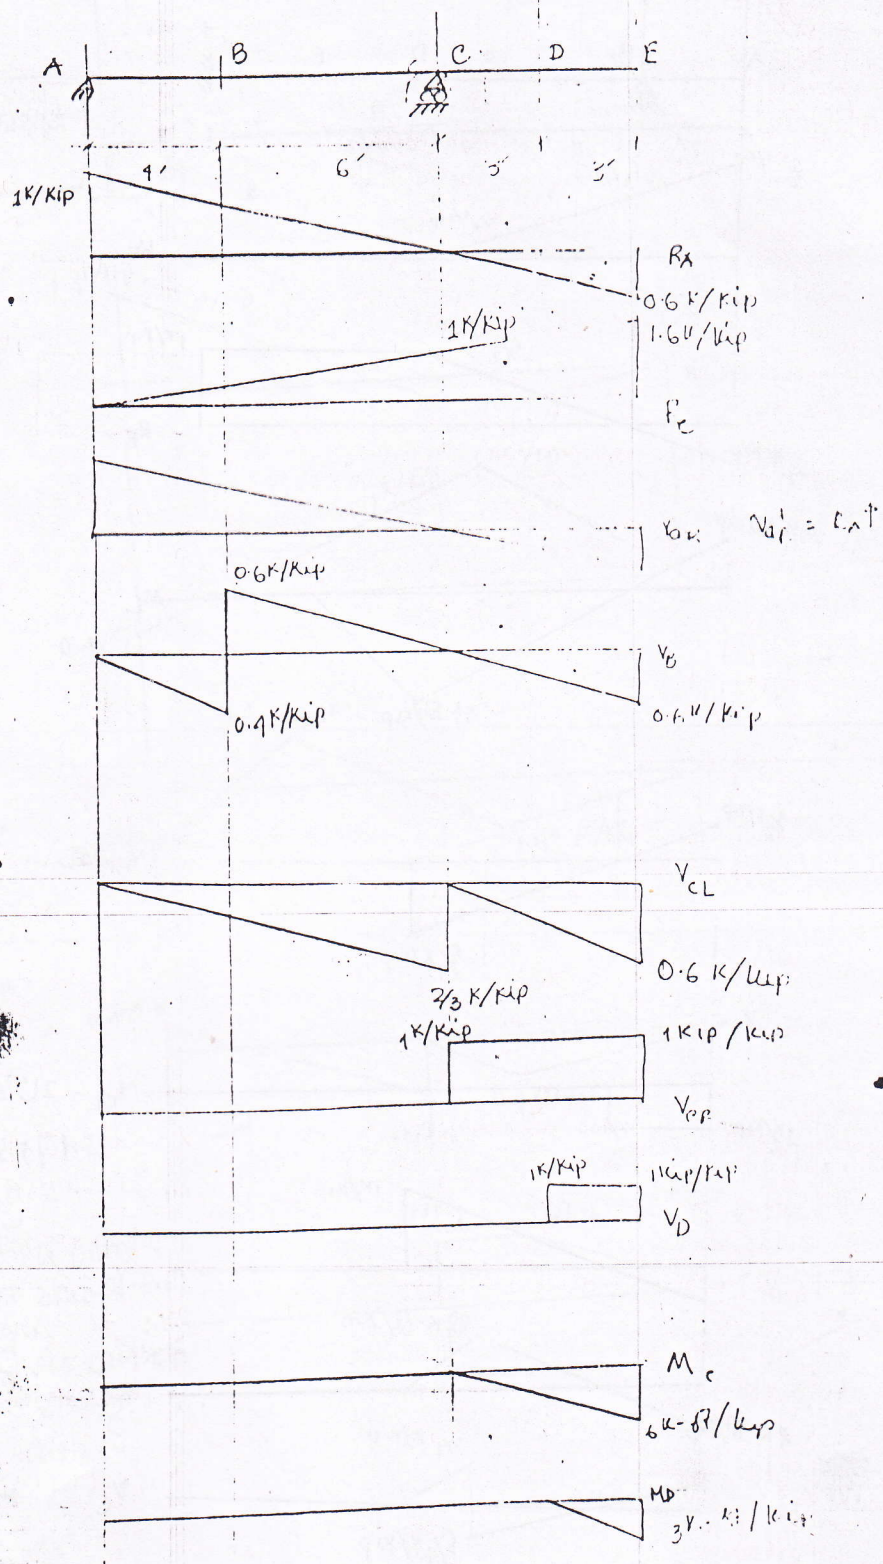 A B C D E
4' 6' 3' 3'
1K/Kip
RA
0.6K/Kip
1K/Kip
1.6K/Kip
0.6K/Kip
VB
0.4K/Kip
0.6K/Kip
VCL
0.6 K/Kip
2/3 K/Kip
1K/Kip
1Kip/Kip
VCR
1K/Kip
1Kip/Kip
VD
Mc
6K-ft/Kip
MD